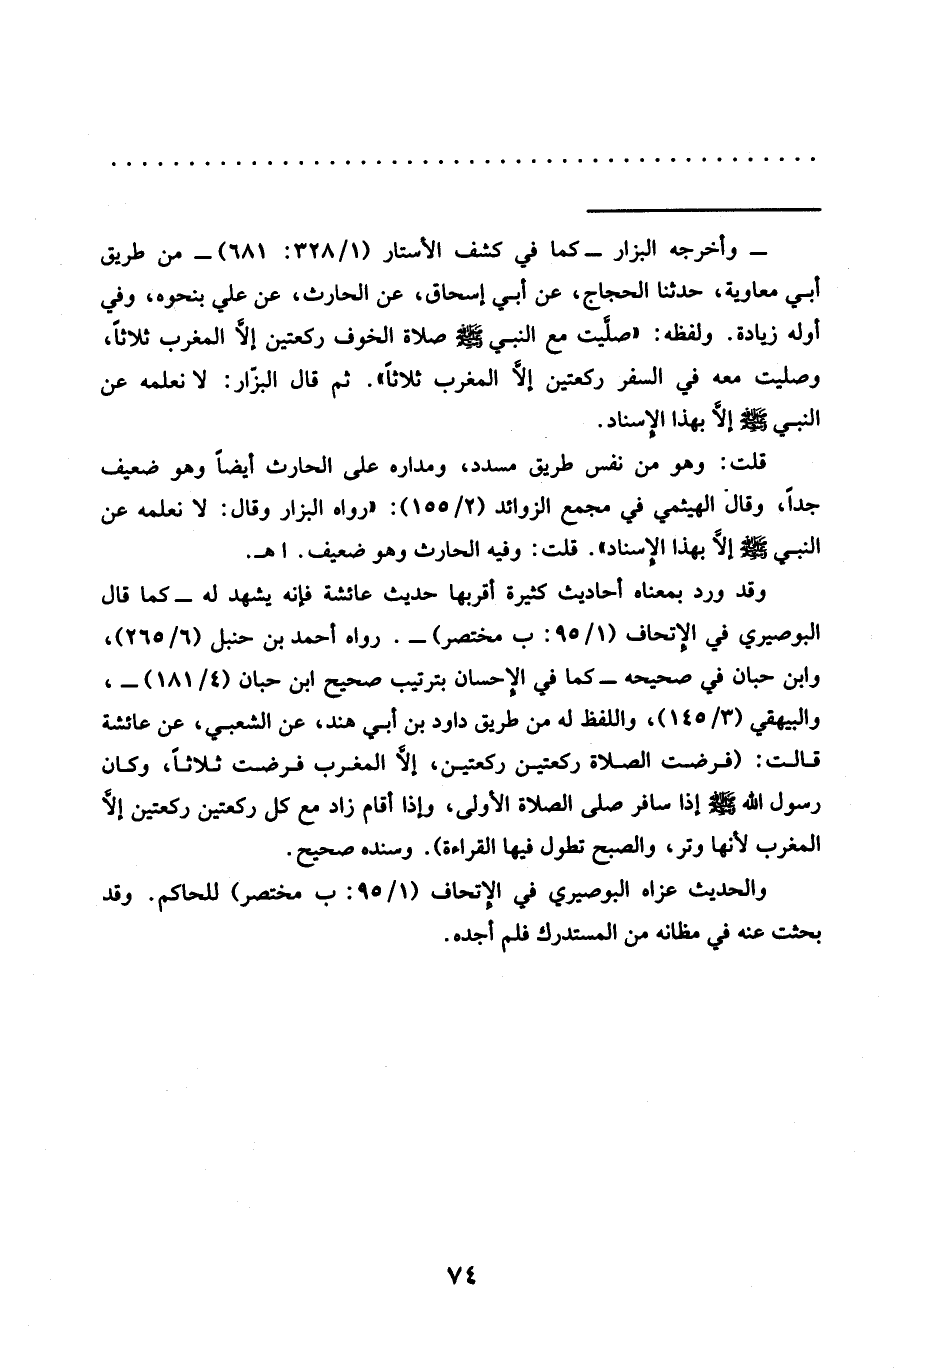 . . . . . . . . . . . . . . . . . . . . . . . . . . . . . . . . . . . . . . . . . . . . . .
ــ وأخرجه البزار ــ كما في كشف الأستار (١/ ٣٢٨: ٦٨١) ــ من طريق
أبـي معاوية، حدثنا الحجاج، عن أبـي إسحاق، عن الحارث، عن علي بنحوه، وفي
أوله زيادة. ولفظه: «صلَّيت مع النبـي ﷺ صلاة الخوف ركعتين إلاَّ المغرب ثلاثاً،
وصليت معه في السفر ركعتين إلاَّ المغرب ثلاثاً». ثم قال البزّار: لا نعلمه عن
النبـي ﷺ إلاَّ بهذا الإسناد.
قلت: وهو من نفس طريق مسدد، ومداره على الحارث أيضاً وهو ضعيف
جداً، وقال الهيثمي في مجمع الزوائد (٢/ ١٥٥): «رواه البزار وقال: لا نعلمه عن
النبـي ﷺ إلاَّ بهذا الإسناد». قلت: وفيه الحارث وهو ضعيف. ا هـ.
وقد ورد بمعناه أحاديث كثيرة أقربها حديث عائشة فإنه يشهد له ــ كما قال
البوصيري في الإتحاف (١/ ٩٥: ب مختصر) ــ . رواه أحمد بن حنبل (٦/ ٢٦٥)،
وابن حبان في صحيحه ــ كما في الإحسان بترتيب صحيح ابن حبان (٤/ ١٨١) ــ ،
والبيهقي (٣/ ١٤٥)، واللفظ له من طريق داود بن أبـي هند، عن الشعبـي، عن عائشة
قالت: (فرضت الصلاة ركعتين ركعتين، إلاَّ المغرب فرضت ثلاثاً، وكان
رسول الله ﷺ إذا سافر صلى الصلاة الأولى، وإذا أقام زاد مع كل ركعتين ركعتين إلاَّ
المغرب لأنها وتر، والصبح تطول فيها القراءة). وسنده صحيح.
والحديث عزاه البوصيري في الإتحاف (١/ ٩٥: ب مختصر) للحاكم. وقد
بحثت عنه في مظانه من المستدرك فلم أجده.
٧٤